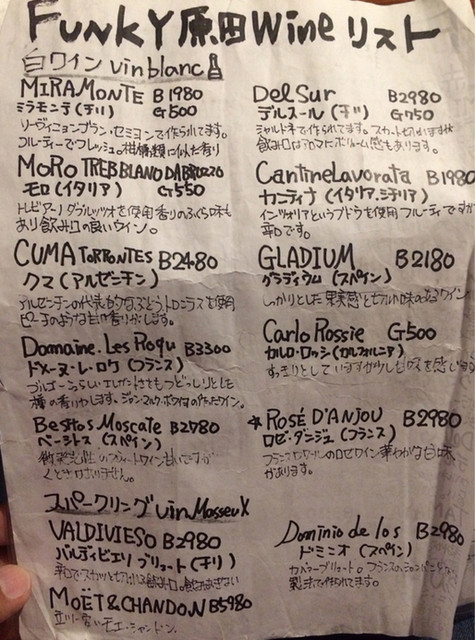 FUNKY原田Wineリスト
白ワイン vin blanc
MIRAMONTE B1980
ミラモンテ(チリ) G500
ソーヴィニョンブラン・セミヨンで作られてます。
フルーティーでフレッシュ。柑橘類に似た香り
MORO TREBBLANO DABRUZZO
モロ(イタリア) G550
トレビアーノダブルッツオを使用 香りのふくらみ
あり飲み口の良いワイン。
CUMA TORRONTES B2480
クマ(アルゼンチン)
アルゼンチンの代表的なぶどうトロンテスを使用
ピーチのような甘い香りがします。
Domaine.Les Roqu B3300
ドメーヌ・レ・ロケ(フランス)
ブルゴーニュらしいエレガントさをもつどっしりとした
Bestios Moscate B2780
ベーシトス(スペイン)
くどさはありません。
スパークリング vin Mosseux
VALDIVIESO B2980
バルディビエソ ブリュット(チリ)
MOËT&CHANDON B5980
Del Sur B2980
デルスール(チリ) G750
シャルドネで作られてます。
飲み口はアロマにボリューム感もあります。
Cantine Lavorata B1980
カンティナ(イタリア.シチリア)
インツォリアというブドウを使用 フルーティですが
辛口です。
GLADIUM B2180
グラディウム(スペイン)
しっかりとした果実感と
Carlo Rossie G500
カルロ・ロッシ(カルフォルニア)
すっきりとしていますが少し
★ROSÉ D'ANJOU B2980
ロゼ・ダンジュ(フランス)
フランス ロワールのロゼワイン 華やかな甘味
があります。
Dominio de los B2980
ドミニオ(スペイン)
カバ・ブリュート。フランスのシャンパンと
製法で作られてます。